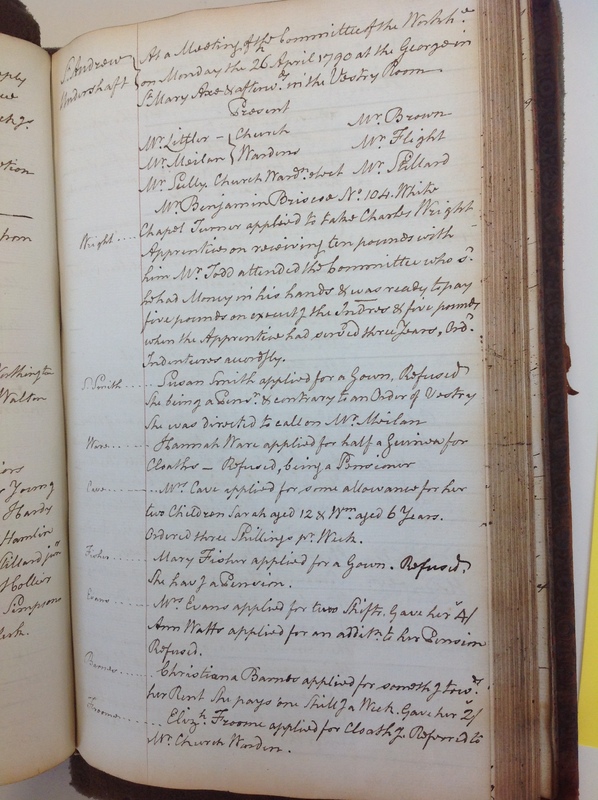 St. Andrew Undershaft
At a Meeting of the Committee of the Workhe.
on Monday the 26 April 1790 at the George in
St Mary Axe & afterwds. in the Vestry Room
Present
Mr. Littler - Church Mr. Brown
Mr. Meilan Wardens Mr. Flight
Mr. Sully Church Wardn. elect Mr. Stillard
Mr. Benjamin Briscoe No. 104. White
Wright Chapel Turner applied to take Charles Wright
Apprentice on receiving ten pounds with
him Mr. Todd attended the Committee who sd.
he had Money in his hands & was ready to pay
five pounds on execug the Indres & five pounds
when the Apprentice had served three Years, Ord.
Indentures accordgly.
S. Smith Susan Smith applied for a Gown, Refused
She being a Pensr. & contrary to an Order of Vestry
She was directed to call on Mr. Meilan
Ware Hannah Ware applied for half a Guinea for
Cloaths - Refused, being a Pensioner
Cave Mrs. Cave applied for some allowance for her
two Children Sarah aged 12 & Wm. aged 6 Years.
Ordered three Shillings pr. Week.
Fisher Mary Fisher applied for a Gown. Refused.
She has a Pension.
Evans Mrs. Evans applied for two Shifts. Gave her 4/
Ann Watts applied for an additn. to her Pension
Refused.
Barnes Christiana Barnes applied for somethg towds.
her Rent She pays one Shillg a Week. Gave her 2/
Froome Elizh. Froome applied for Cloathg. Referred to
Mr. Church Warden.
Worthington
Walton
Young
Hardy
Hamlin
Stillard junr
Hollis
Simpson